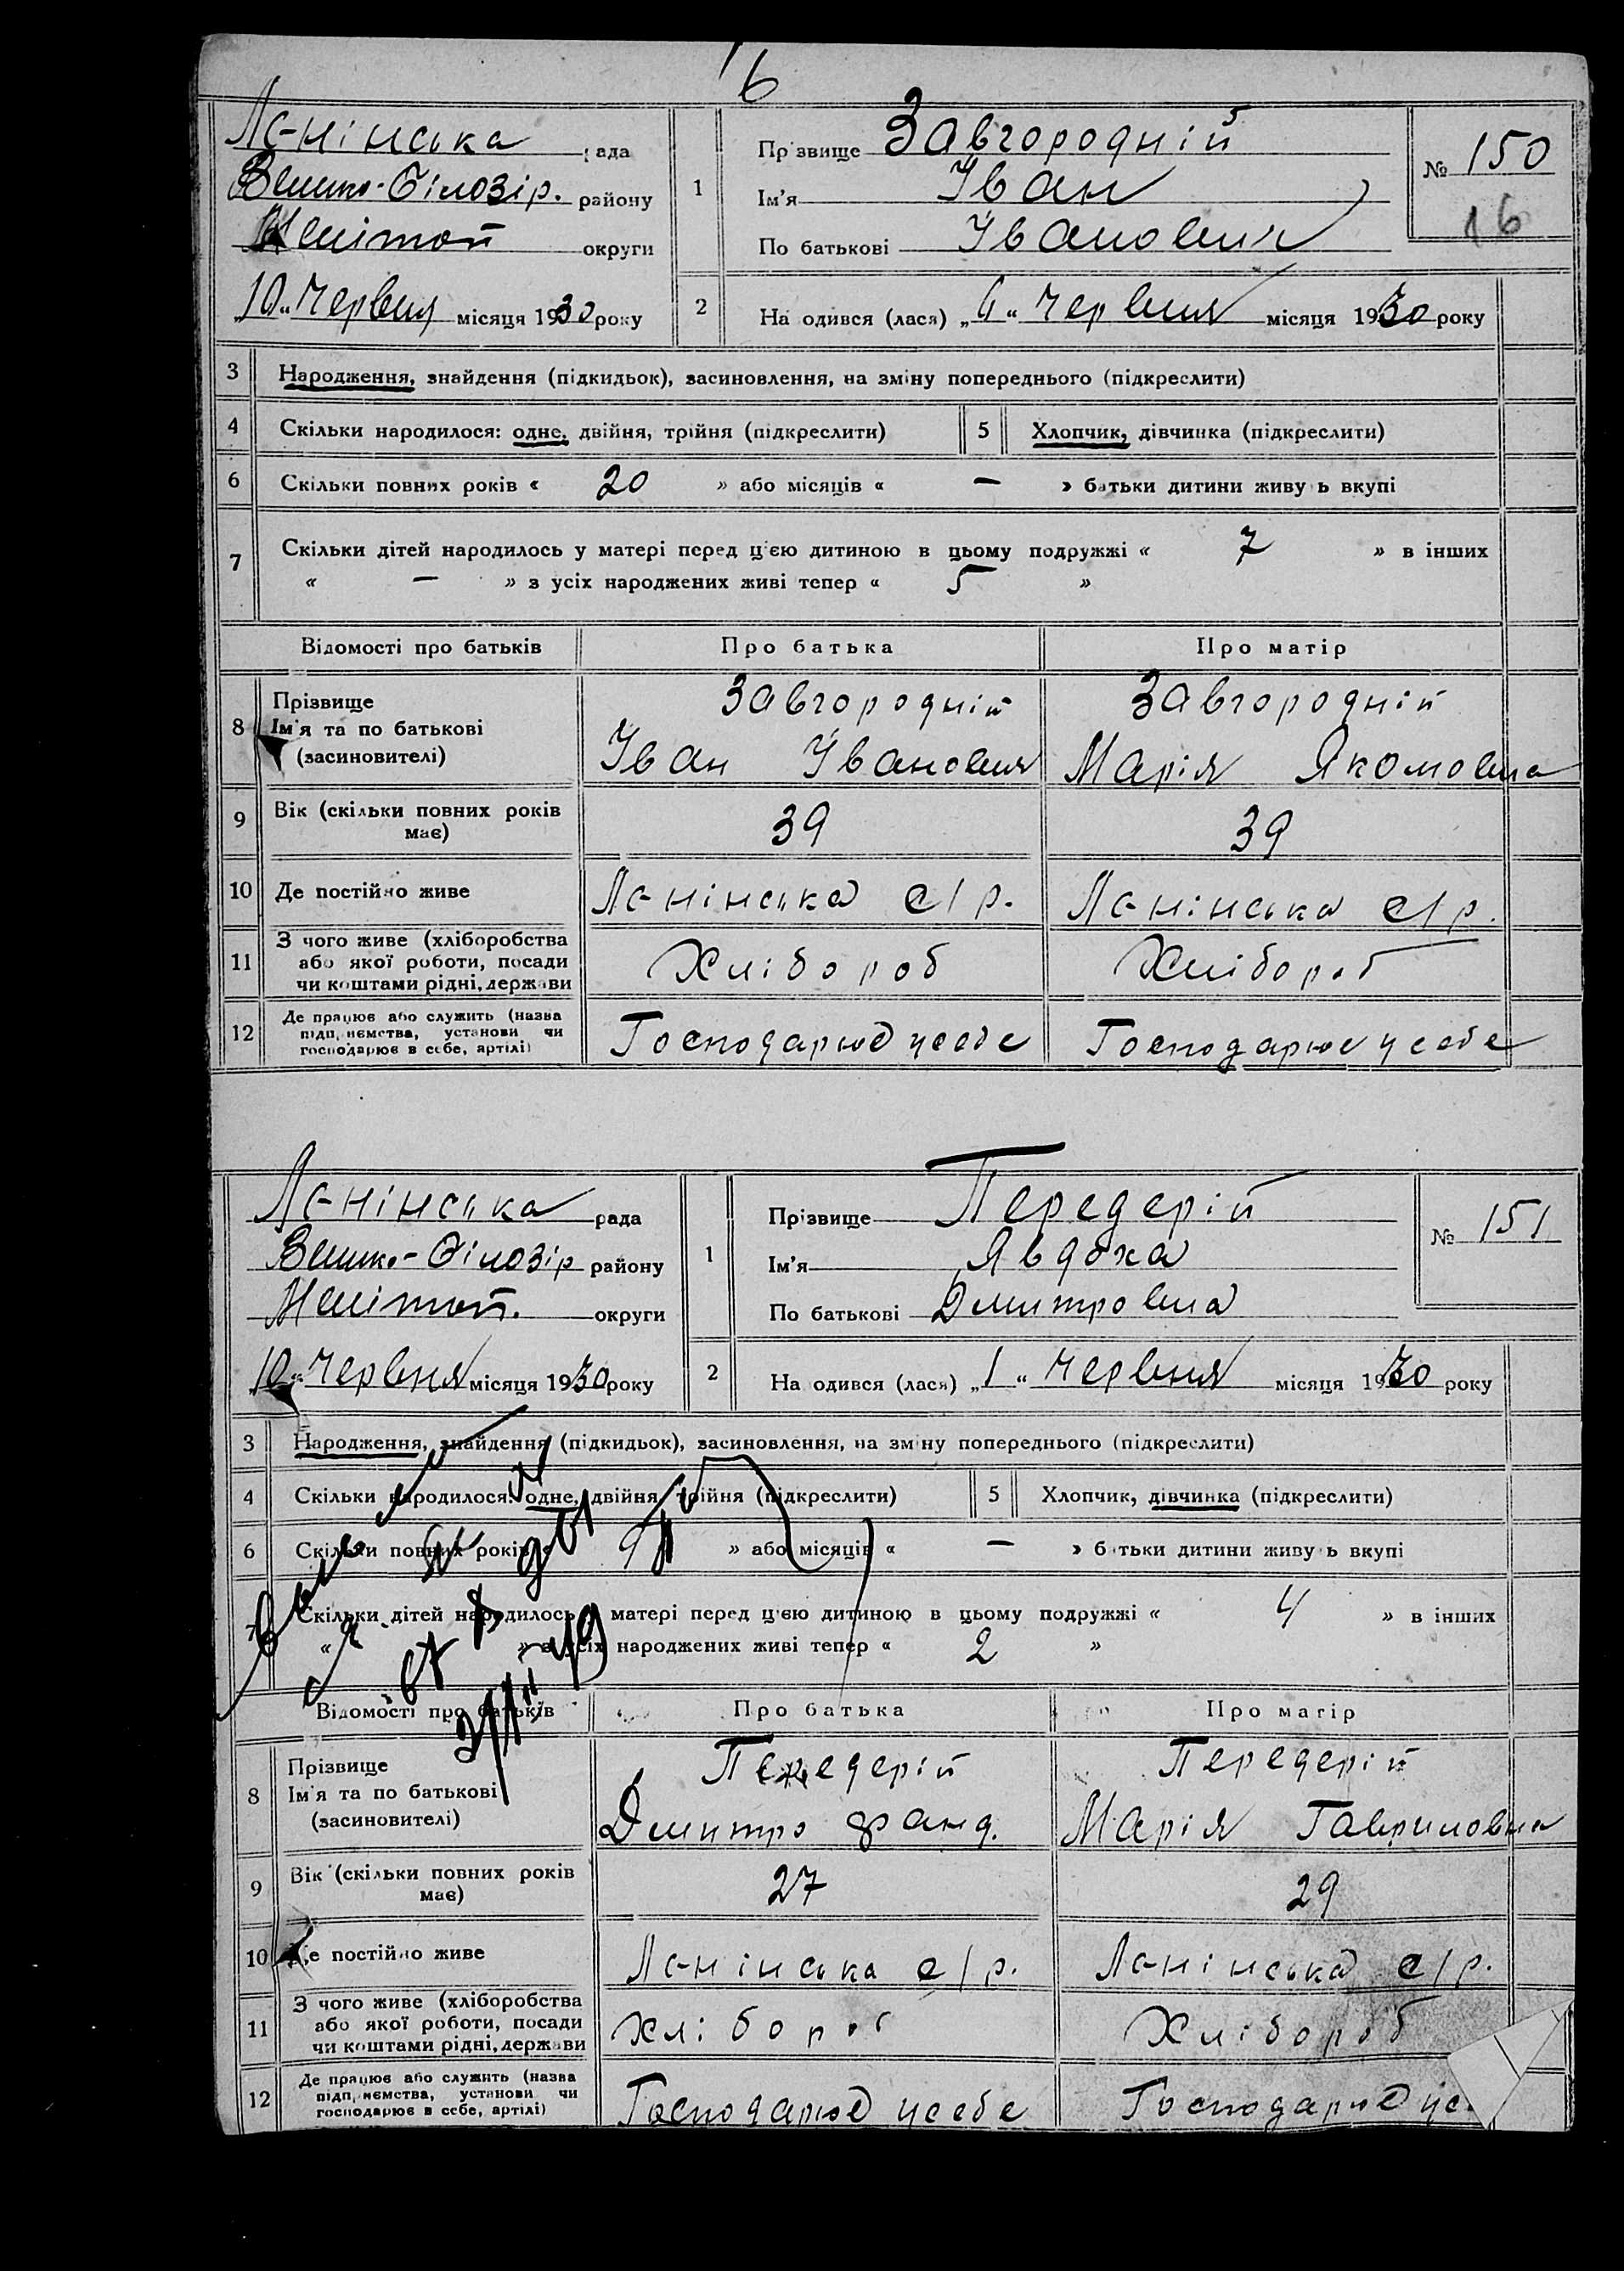 16
Ленінська рада
Велико-Білозір. району
Мелітоп округи
„10“ Червня місяця 1930 року
1
Прізвище Завгородній
Ім'я Іван
По батькові Іванович
№ 150
16
2
На одився (лася) „6“ Червня місяця 1930 року
3 Народження, знайдення (підкидьок), засиновлення, на зміну попереднього (підкреслити)
4 Скільки народилося: одне, двійня, трійня (підкреслити) 5 Хлопчик, дівчинка (підкреслити)
6 Скільки повних років « 20 » або місяців « — » батьки дитини живу ь вкупі
7 Скільки дітей народилось у матері перед цією дитиною в цьому подружжі « 7 » в інших
« — » з усіх народжених живі тепер « 5 »
Відомості про батьків Про батька Про матір
8 Прізвище
Ім'я та по батькові
(засиновителі)
Завгородній
Іван Іванович
Завгородній
Марія Якомовна
9 Вік (скільки повних років
має)
39 39
10 Де постійно живе Ленінська с/р. Ленінська с/р.
11 З чого живе (хліборобства
або якої роботи, посади
чи коштами рідні, держави
Хлібороб Хлібороб
12 Де працює або служить (назва
підп, иємства, установи чи
господарює в себе, артілі)
Господарює у себе Господарює у себе
Ленінська рада
Велико-Білозір району
Мелітоп. округи
„10“ Червня місяця 1930 року
1
Прізвище Передерій
Ім'я Явдоха
По батькові Дмитровна
№ 151
2
На одився (лася) „1“ Червня місяця 1930 року
3 Народження, знайдення (підкидьок), засиновлення, на зміну попереднього (підкреслити)
4 Скільки народилося: одне, двійня, трійня (підкреслити) 5 Хлопчик, дівчинка (підкреслити)
6 Скільки повних років « 9 » або місяців « — » б тьки дитини живу ь вкупі
7 Скільки дітей народилось у матері перед цією дитиною в цьому подружжі « 4 » в інших
« » з усіх народжених живі тепер « 2 »
Відомості про батьків Про батька Про матір
8 Прізвище
Ім'я та по батькові
(засиновителі)
Передерій
Дмитро Фанд.
Передерій
Марія Гавриловна
9 Вік (скільки повних років
має)
27 29
10 Де постійно живе Ленінська с/р. Ленінська с/р.
11 З чого живе (хліборобства
або якої роботи, посади
чи коштами рідні, держави
Хлібороб Хлібороб
12 Де працює або служить (назва
підп, иємства, установи чи
господарює в себе, артілі)
Господарює у себе Господарює у се